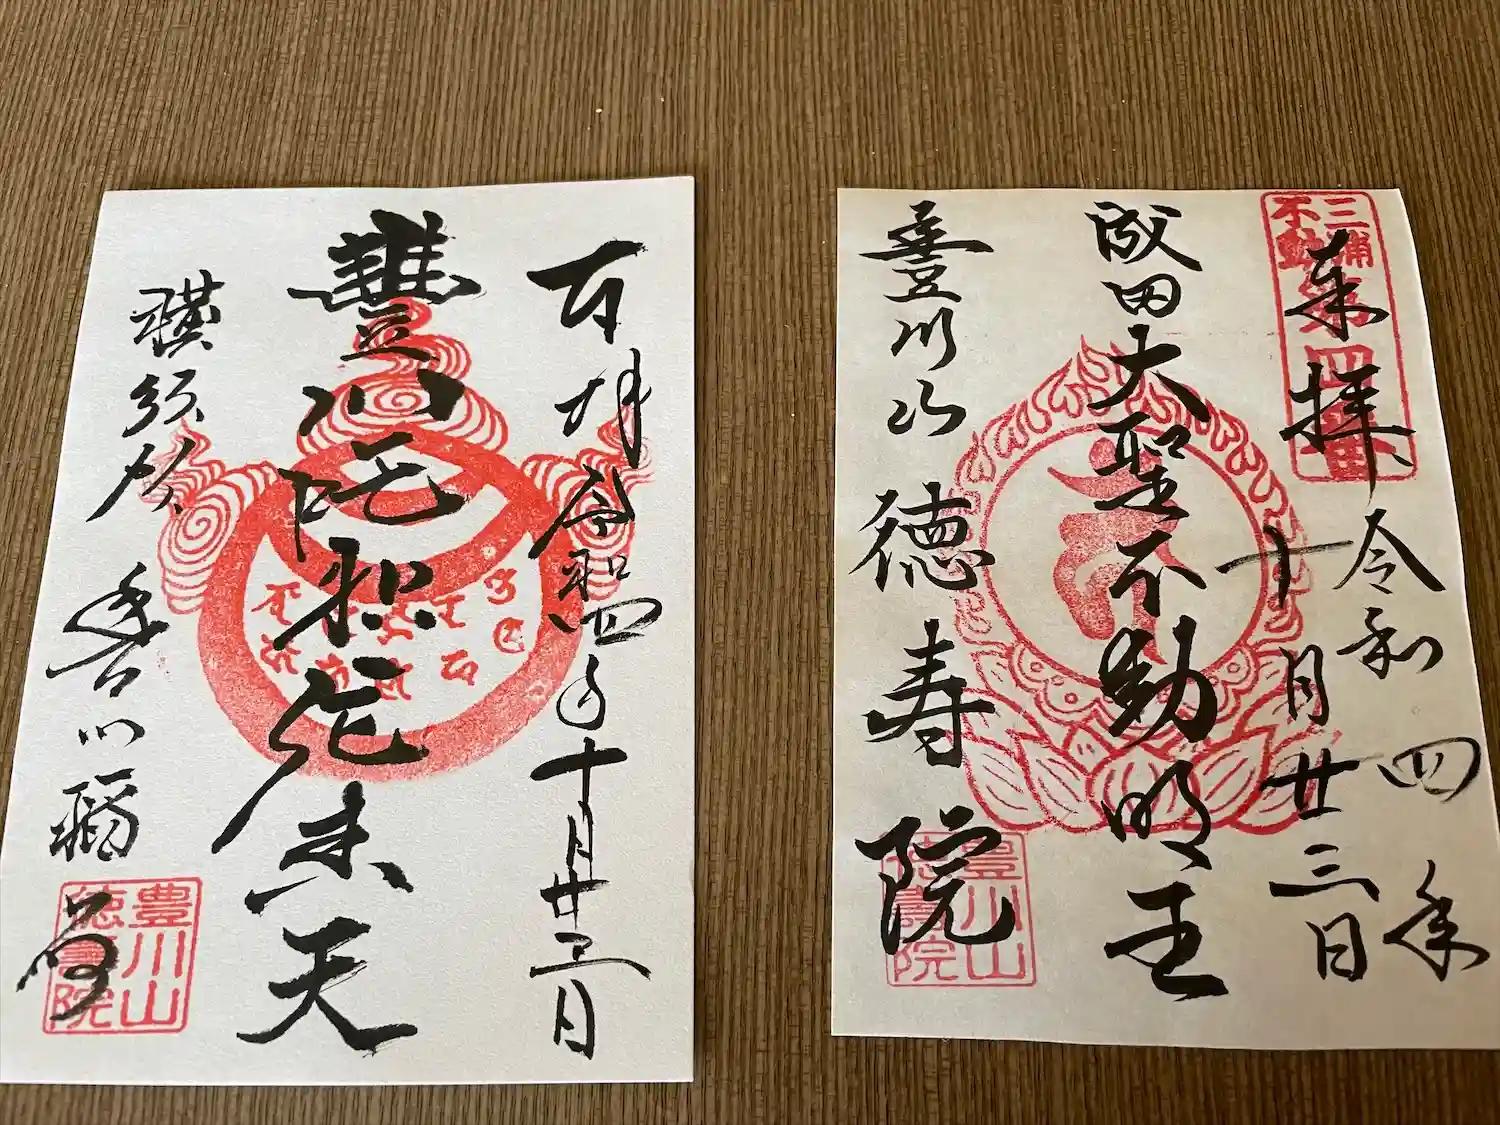 百拝 令和四年十月廿三日
豐川陀枳尼眞天
横須賀 豊川稲荷
豊川山
徳寿院
三浦
不動
奉拝 令和四年
十月廿三日
成田大聖不動明王
豊川山 徳寿院
豊川山
徳寿院